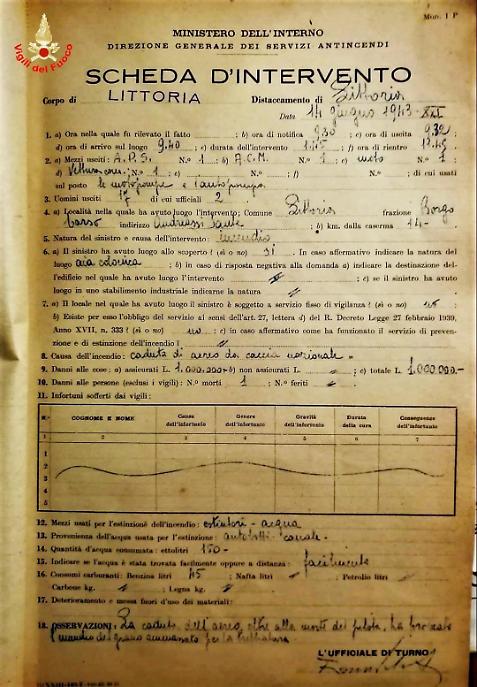 Mod. 1 P
Vigili del Fuoco
MINISTERO DELL'INTERNO
DIREZIONE GENERALE DEI SERVIZI ANTINCENDI
SCHEDA D'INTERVENTO
Corpo di LITTORIA Distaccamento di Littoria
Data 14 giugno 1943 - XXI
1. a) Ora nella quale fu rilevato il fatto ; b) ora di notifica 9,30 ; c) ora di uscita 9,32
d) ora di arrivo sul luogo 9,40 ; e) durata dell'intervento ; f) ora di rientro
2. a) Mezzi usciti: A.P.S. N.° 1 ; b) A.C.M. N.° 1 ; c) moto N.° 1 ;
d) N.° 1 ; e) N.° ; f) N.° di cui usati
sul posto le motopompe e l'autopompa
3. Uomini usciti 17 di cui ufficiali 2
4. a) Località nella quale ha avuto luogo l'intervento; Comune Littoria frazione Borgo
Carso indirizzo ; b) km. dalla caserma 14 -
5. Natura del sinistro e causa dell'intervento: incendio
6. a) Il sinistro ha avuto luogo allo scoperto? (sì o no) si . In caso affermativo indicare la natura del
luogo aia colonica ; b) in caso di risposta negativa alla domanda a) indicare la destinazione del-
l'edificio nel quale ha avuto luogo l'intervento ; c) se il sinistro ha avuto
luogo in uno stabilimento industriale indicarne la natura
7. a) Il locale nel quale ha avuto luogo il sinistro è soggetto a servizio fisso di vigilanza? (sì o no)
b) Esiste per esso l'obbligo del servizio ai sensi dell'art. 27, lettera d) del R. Decreto Legge 27 febbraio 1939,
Anno XVII, n. 333? (sì o no) no ; c) in caso affermativo come ha funzionato il servizio di preven-
zione e di estinzione dell'incendio?
8. Causa dell'incendio: caduta di aereo da caccia nazionale
9. Danni alle cose: a) assicurati L. 1.000.000 - b) non assicurati L. ; c) totale L. 1.000.000 -
10. Danni alle persone (esclusi i vigili): N.° morti 1 N.° feriti
11. Infortuni sofferti dai vigili:
N.° COGNOME E NOME Causa dell'infortunio Genere dell'infortunio Gravità dell'infortunio Durata della cura Conseguenze dell'infortunio
1 2 3 4 5 6 7
1
2
3
4
5
12. Mezzi usati per l'estinzione dell'incendio: estintori - acqua
13. Provenienza dell'acqua usata per l'estinzione: autobotti - canale -
14. Quantità d'acqua consumata: ettolitri 150 -
15. Indicare se l'acqua è stata trovata facilmente oppure a distanza: facilmente
16. Consumi carburanti: Benzina litri 45 ; Nafta litri ; Petrolio litri
Carbone kg. ; Legna kg.
17. Deterioramento e messa fuori d'uso dei materiali:
18. OSSERVAZIONI: La caduta dell'aereo, oltre alla morte del pilota, ha provocato
incendio del grano ammassato per la trebbiatura
L'UFFICIALE DI TURNO